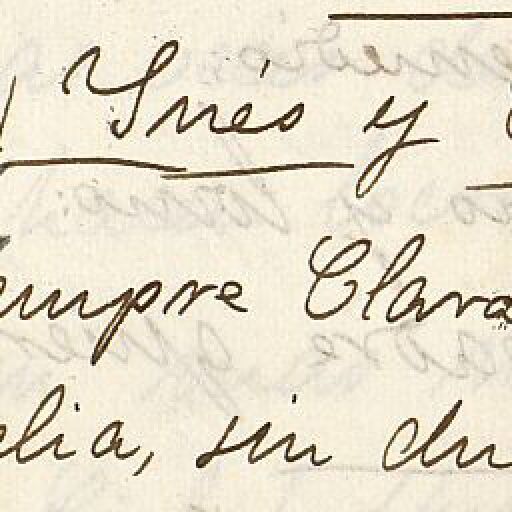 Inés y
empre Clara
elia, sin du